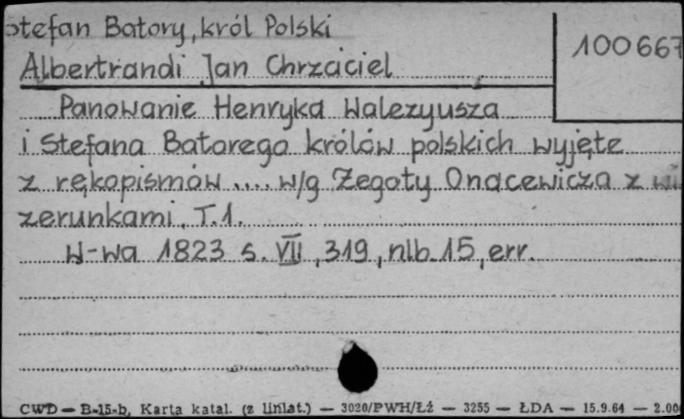 Stefan Batory, król Polski
100667
Albertrandi Jan Chrzciciel
Panowanie Henryka Walezyusza
i Stefana Batorego królów polskich wyjęte
z rękopismów .... w/g Żegoty Onacewicza z wi
zerunkami, T.1.
W-wa 1823 s. VII, 319, nlb. 15, err.
CWD — B-15-b, Karta katal. (z liniat.) — 3020/PWH/Łź — 3255 — ŁDA — 15.9.64 — 2.00